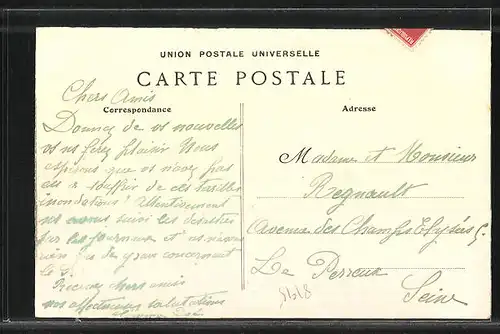 UNION POSTALE UNIVERSELLE
CARTE POSTALE
Correspondance
Adresse
Chers Amis
Donnez de vos nouvelles
vous ferez plaisir Nous
espérons que vous n'avez pas
eu à souffrir de ces terribles
inondations!
nous avons suivi les désastres
par les journaux et
rien que de concernant
le
Recevez chers amis
nos affectueuses salutations
Madame et Monsieur
Regnault
Avenue des Champs Elysées
Le Perreux
Seine